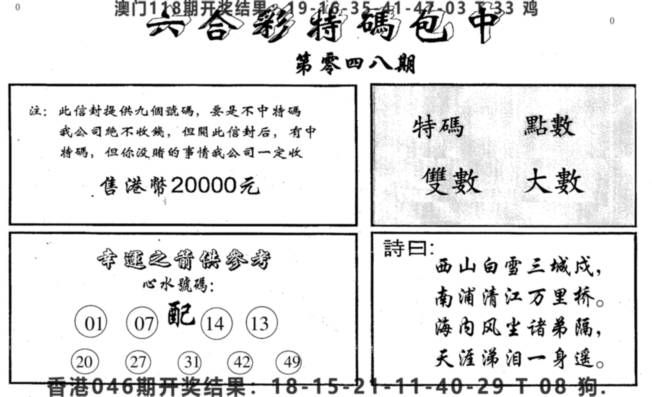 澳门118期开奖结果：19-16-35-41-47-03 T 33 鸡
0
0
六合彩特碼包中
第零四八期
注：此信封提供九個號碼，要是不中特碼
我公司绝不收錢，但開此信封后，有中
特碼，但你没賭的事情我公司一定收
售港幣20000元
特碼 點數
雙數 大數
幸運之箭供参考
心水號碼：
01 07 配 14 13
20 27 31 42 49
詩曰：
西山白雪三城戍，
南浦清江万里桥。
海内风尘诸弟隔，
天涯涕泪一身遥。
香港046期开奖结果：18-15-21-11-40-29 T 08 狗.